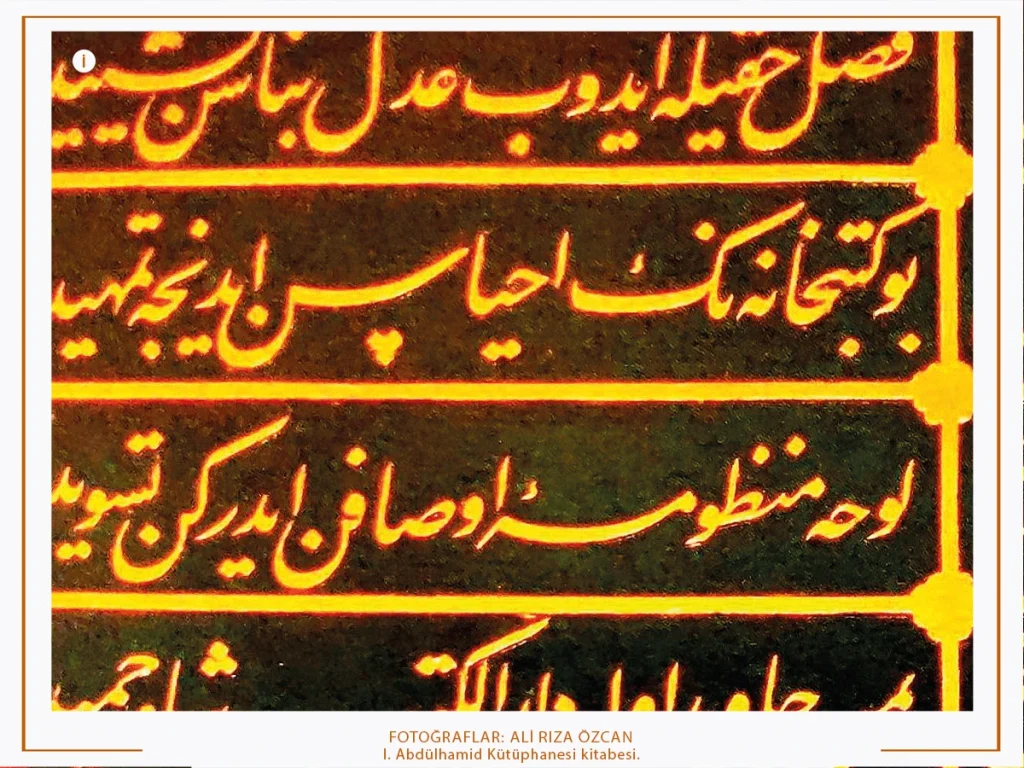 i
فصل حقیله ایدوب عدل بناسن تشیید
بو کتبخانه نك احیاسن ایدنجه تمهید
لوحه منظومۀ اوصافن ایدركن تسوید
دار الكتب شاه حمید
FOTOĞRAFLAR: ALİ RIZA ÖZCAN
I. Abdülhamid Kütüphanesi kitabesi.